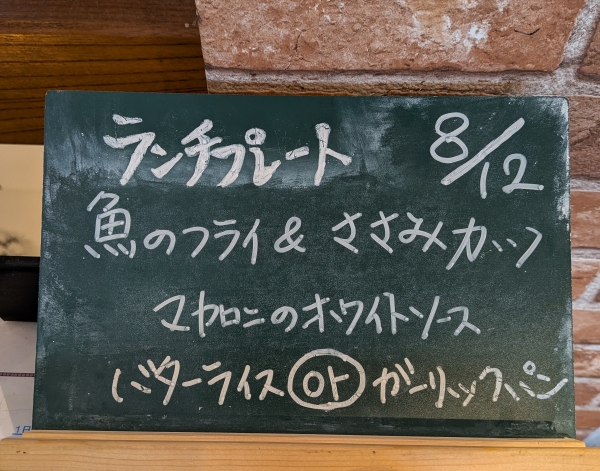 ランチプレート 8/12
魚のフライ & ささみカツ
マカロニのホワイトソース
バターライス or ガーリックパン
1F